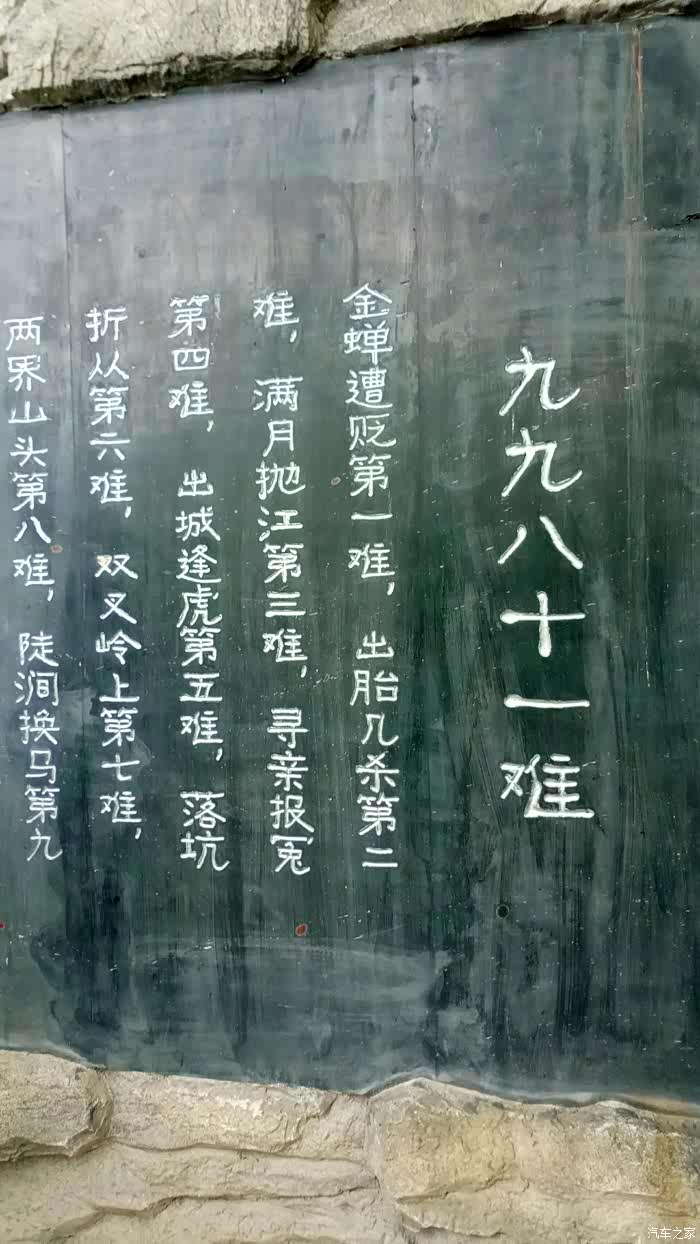 九九八十一难
金蝉遭贬第一难，出胎几杀第二
难，满月抛江第三难，寻亲报冤
第四难，出城逢虎第五难，落坑
折从第六难，双叉岭上第七难，
两界山头第八难，陡涧换马第九
汽车之家